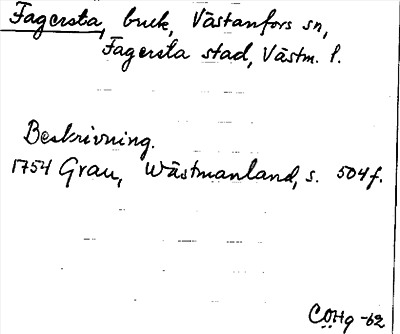 Fagersta, bruk, Västanfors sn,
Fagersta stad, Västm. l.
Beskrivning.
1754 Grau, Wästmanland, s. 504 f.
CÖHg -62